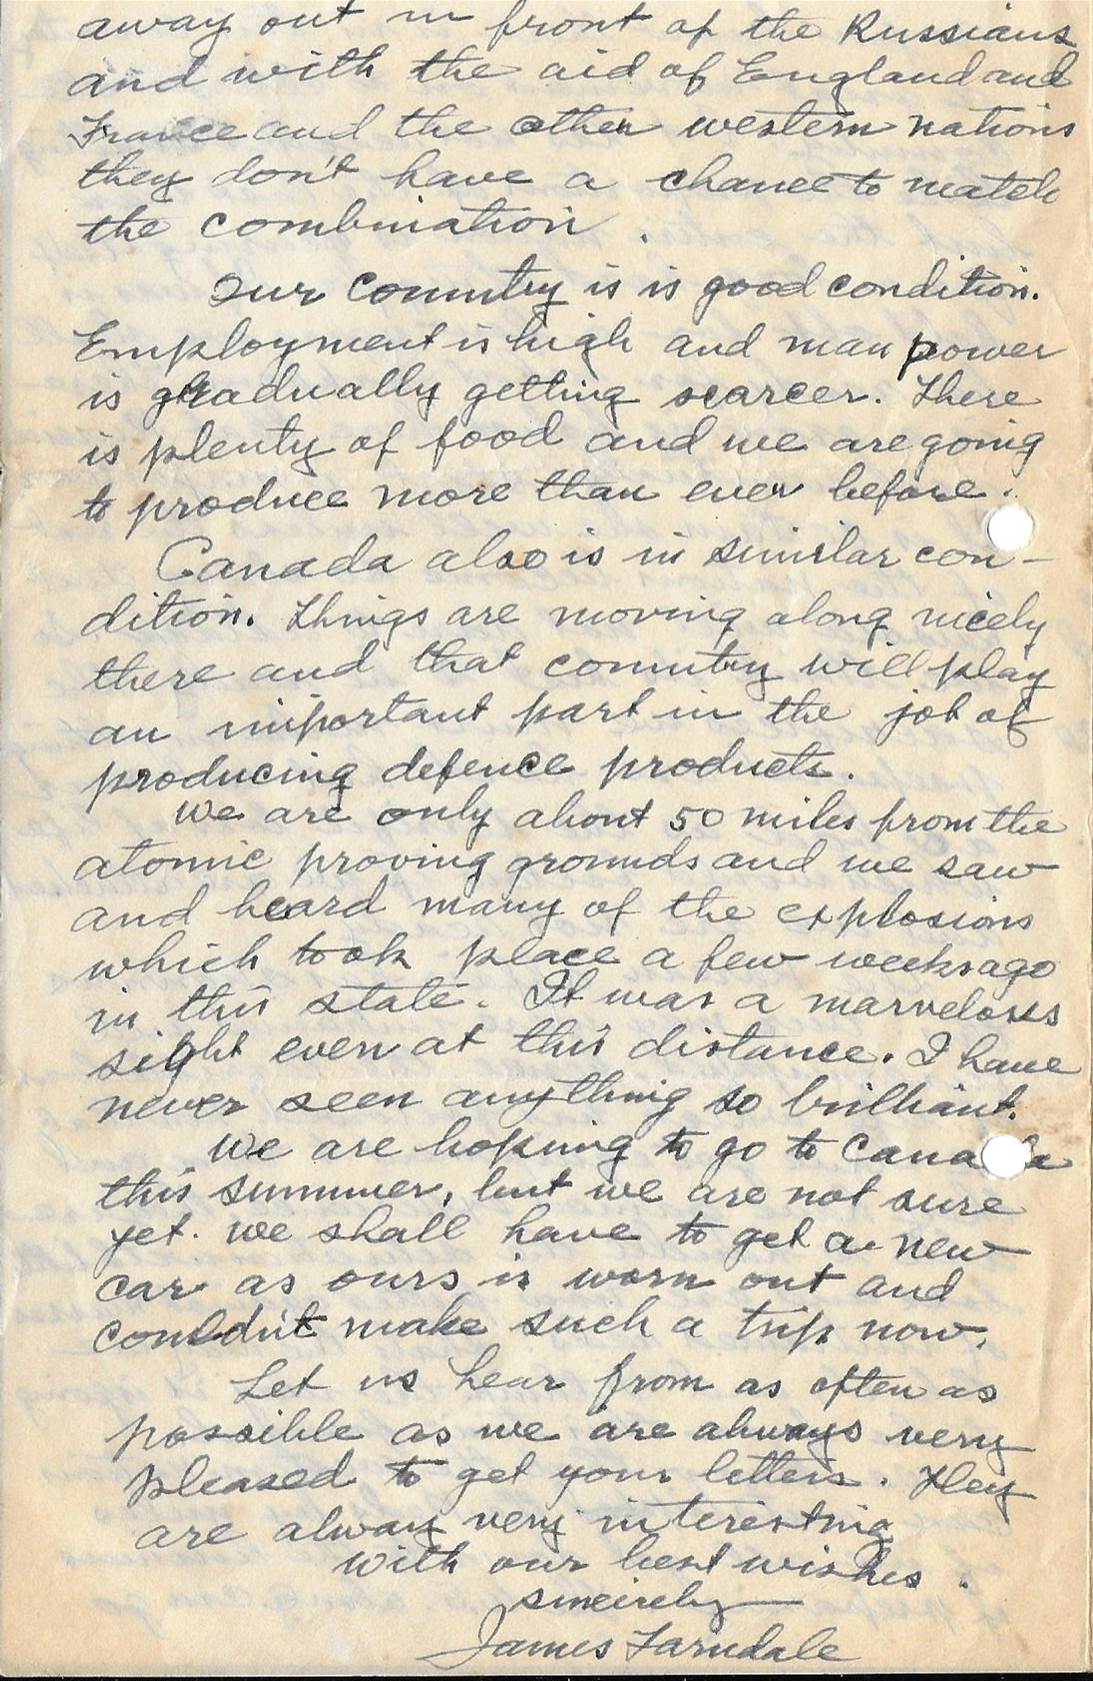 away out in front of the Russians
and with the aid of England and
France and the other western nations
they don't have a chance to match
the combination.
Our Country is is good condition.
Employment is high and man power
is gradually getting scarcer. There
is plenty of food and we are going
to produce more than ever before.
Canada also is in similar con-
dition. Things are moving along nicely
there and that country will play
an important part in the job of
producing defence products.
We are only about 50 miles from the
atomic proving grounds and we saw
and heard many of the explosions
which took place a few weeks ago
in this state. It was a marvelous
sight even at this distance. I have
never seen anything so brilliant.
We are hoping to go to Canada
this summer, but we are not sure
yet. We shall have to get a new
car as ours is worn out and
couldn't make such a trip now.
Let us hear from as often as
possible as we are always very
pleased to get your letters. They
are alway very interesting
with our best wishes.
sincirely
James Farndale